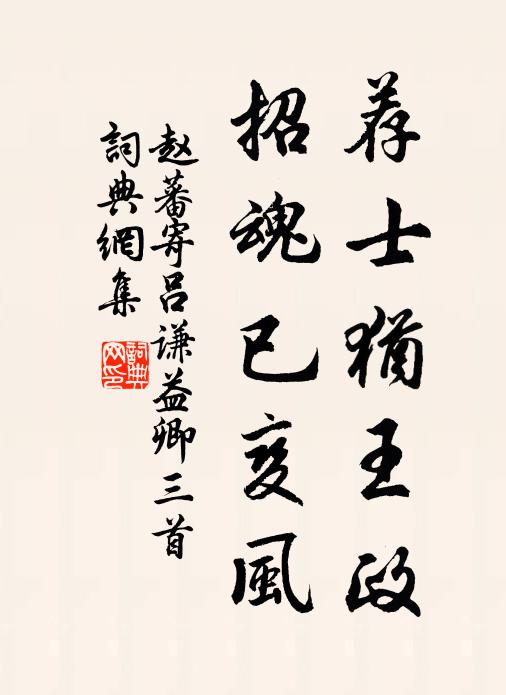 荐士犹王政
招魂已变風
赵蕃寄吕谦益卿三首
詞典網集
詞典網印